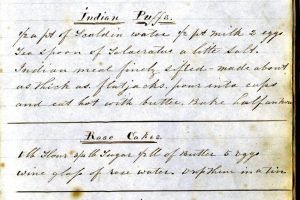 Indian Puffs.
1/2 a pt of Scaldin water 1/2 pt milk 2 eggs
Tea spoon of Salaeratus a little Salt.
Indian meal finely sifted - made about
as thick as flatjacks. pour into cups
and eat hot with butter. Bake half an hour
Rose Cakes.
1 lb Flour 3/4 lb Sugar of Butter 5 eggs
wine glass of rose water. Drop them in a tin